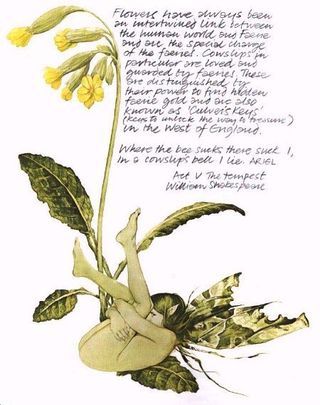 Flowers have always been
an intertwined link between
the human world and faerie
and are the special charge
of the faeries. Cowslips in
particular are loved and
guarded by faeries. These
are distinguished by
their power to find hidden
faerie gold and are also
known as 'Culvers Keys'
(keys to unlock the way to treasure)
in the West of England.
Where the bee sucks there suck I,
In a cowslips bell I lie. ARIEL
Act V The Tempest
William Shakespeare